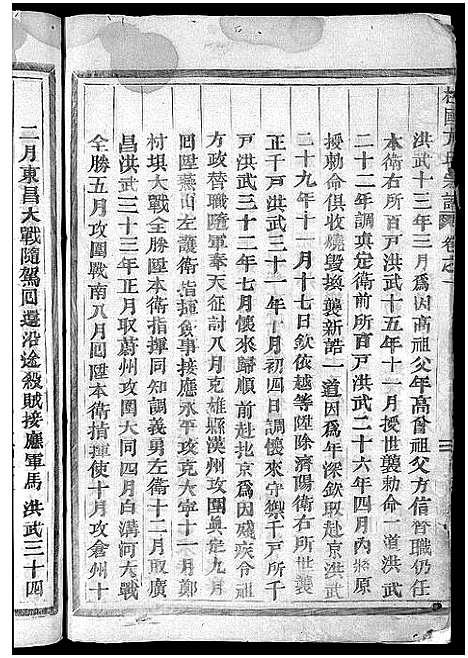 宗譜 卷之一
洪武十三年三月爲因高祖父年高曾祖父方信替職仍任
本衛右所百戸洪武十五年十一月授世襲勅命一道洪武
二十二年調眞定衛前所百戸洪武二十六年四月內將原
授勅命俱收燒毀換襲新誥一道因爲年深欽取赴京洪武
二十九年十一月十七日欽依越等陞除濟陽衛右所世襲
正千戸洪武三十一年十月初四日調懷來守禦千戸所千
戸洪武三十二年七月懷來歸順前赴北京爲因殘疾令祖
方政替職隨軍奉天征討八月克雄縣漠州攻圍眞定九月
回陞燕山左護衛指揮僉事接應永平攻克大寧十一月鄭
村垻大戰全勝陞本衛指揮同知調義勇左衛十二月取廣
昌洪武三十三年正月取蔚州攻圍大同四月白溝河大戰
全勝五月攻圍戰南八月回陞本衛指揮使十月攻倉州十
二月東昌大戰隨駕回還沿途殺賊接應軍馬 洪武三十四